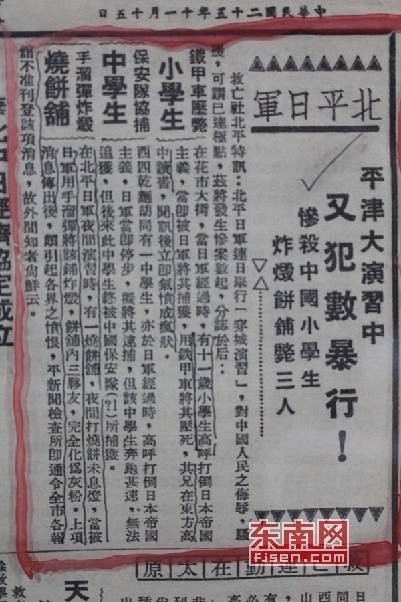 中華民國二十五年十一月十五日
北平日軍
平津大演習中
又犯數暴行！
慘殺中國小學生
炸燬餅舖斃三人
救亡社北平特訊：北平日軍連日舉行「穿城演習」，對中國人民之侮辱，騷
擾，可謂已達極點，茲將發生慘案數起，分誌于后：
鐵甲車壓斃
小學生
在花市大街，當日軍經過時，有十一歲小學生高呼打倒日本帝國
主義，當即被日軍將其捕獲，用鐵甲車將其壓死，其兄在東方高
中讀書，聞訊後立即氣憤成瘋狀。
保安隊協捕
中學生
西四乾麵胡同有一中學生，亦於日軍經過時，高呼打倒日本帝國
主義，日軍當即停步，擬將其逮捕，但該中學生奔跑甚速，無法
追獲，但後來此中學生終被中國保安隊（？！）所捕獲。
手溜彈炸燬
燒餅舖
在北平日軍夜間演習時，有一燒餅舖，夜間打燒餅未息燈，當被
日軍用手溜彈將該舖炸燬，餅舖內三夥友，完全化爲灰粉。上項
消息傳出後，頗引起各界之憤恨，平新聞檢查所即通令全市各報
館不准刊登該項消息，故外間知者尚鮮云。
北中日經濟協定成立
救亡運動在太原
天
东南网
fjsen.com